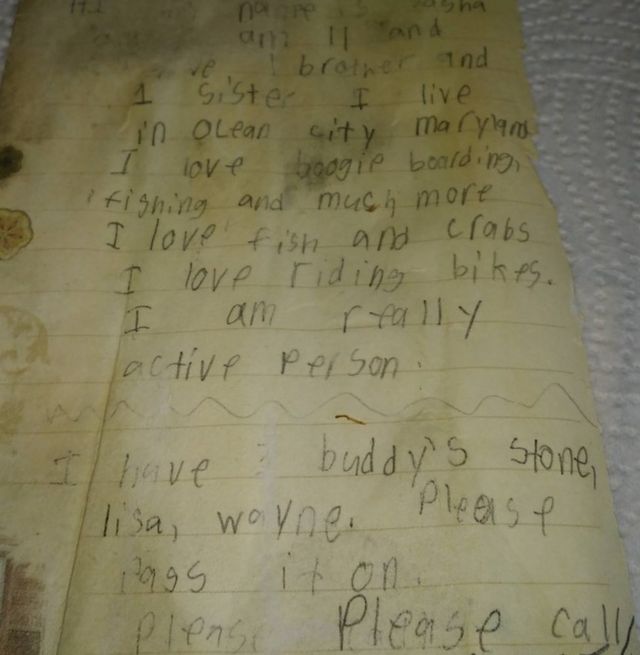 HI name is Sasha
am 11 and
brother and
1 sister I live
in Ocean city maryland
I love boogie boarding,
fishing and much more
I love fish and crabs
I love riding bikes.
I am really
active person.
I have buddy's stone,
lisa, wayne. Please
pass it on.
Please Please call